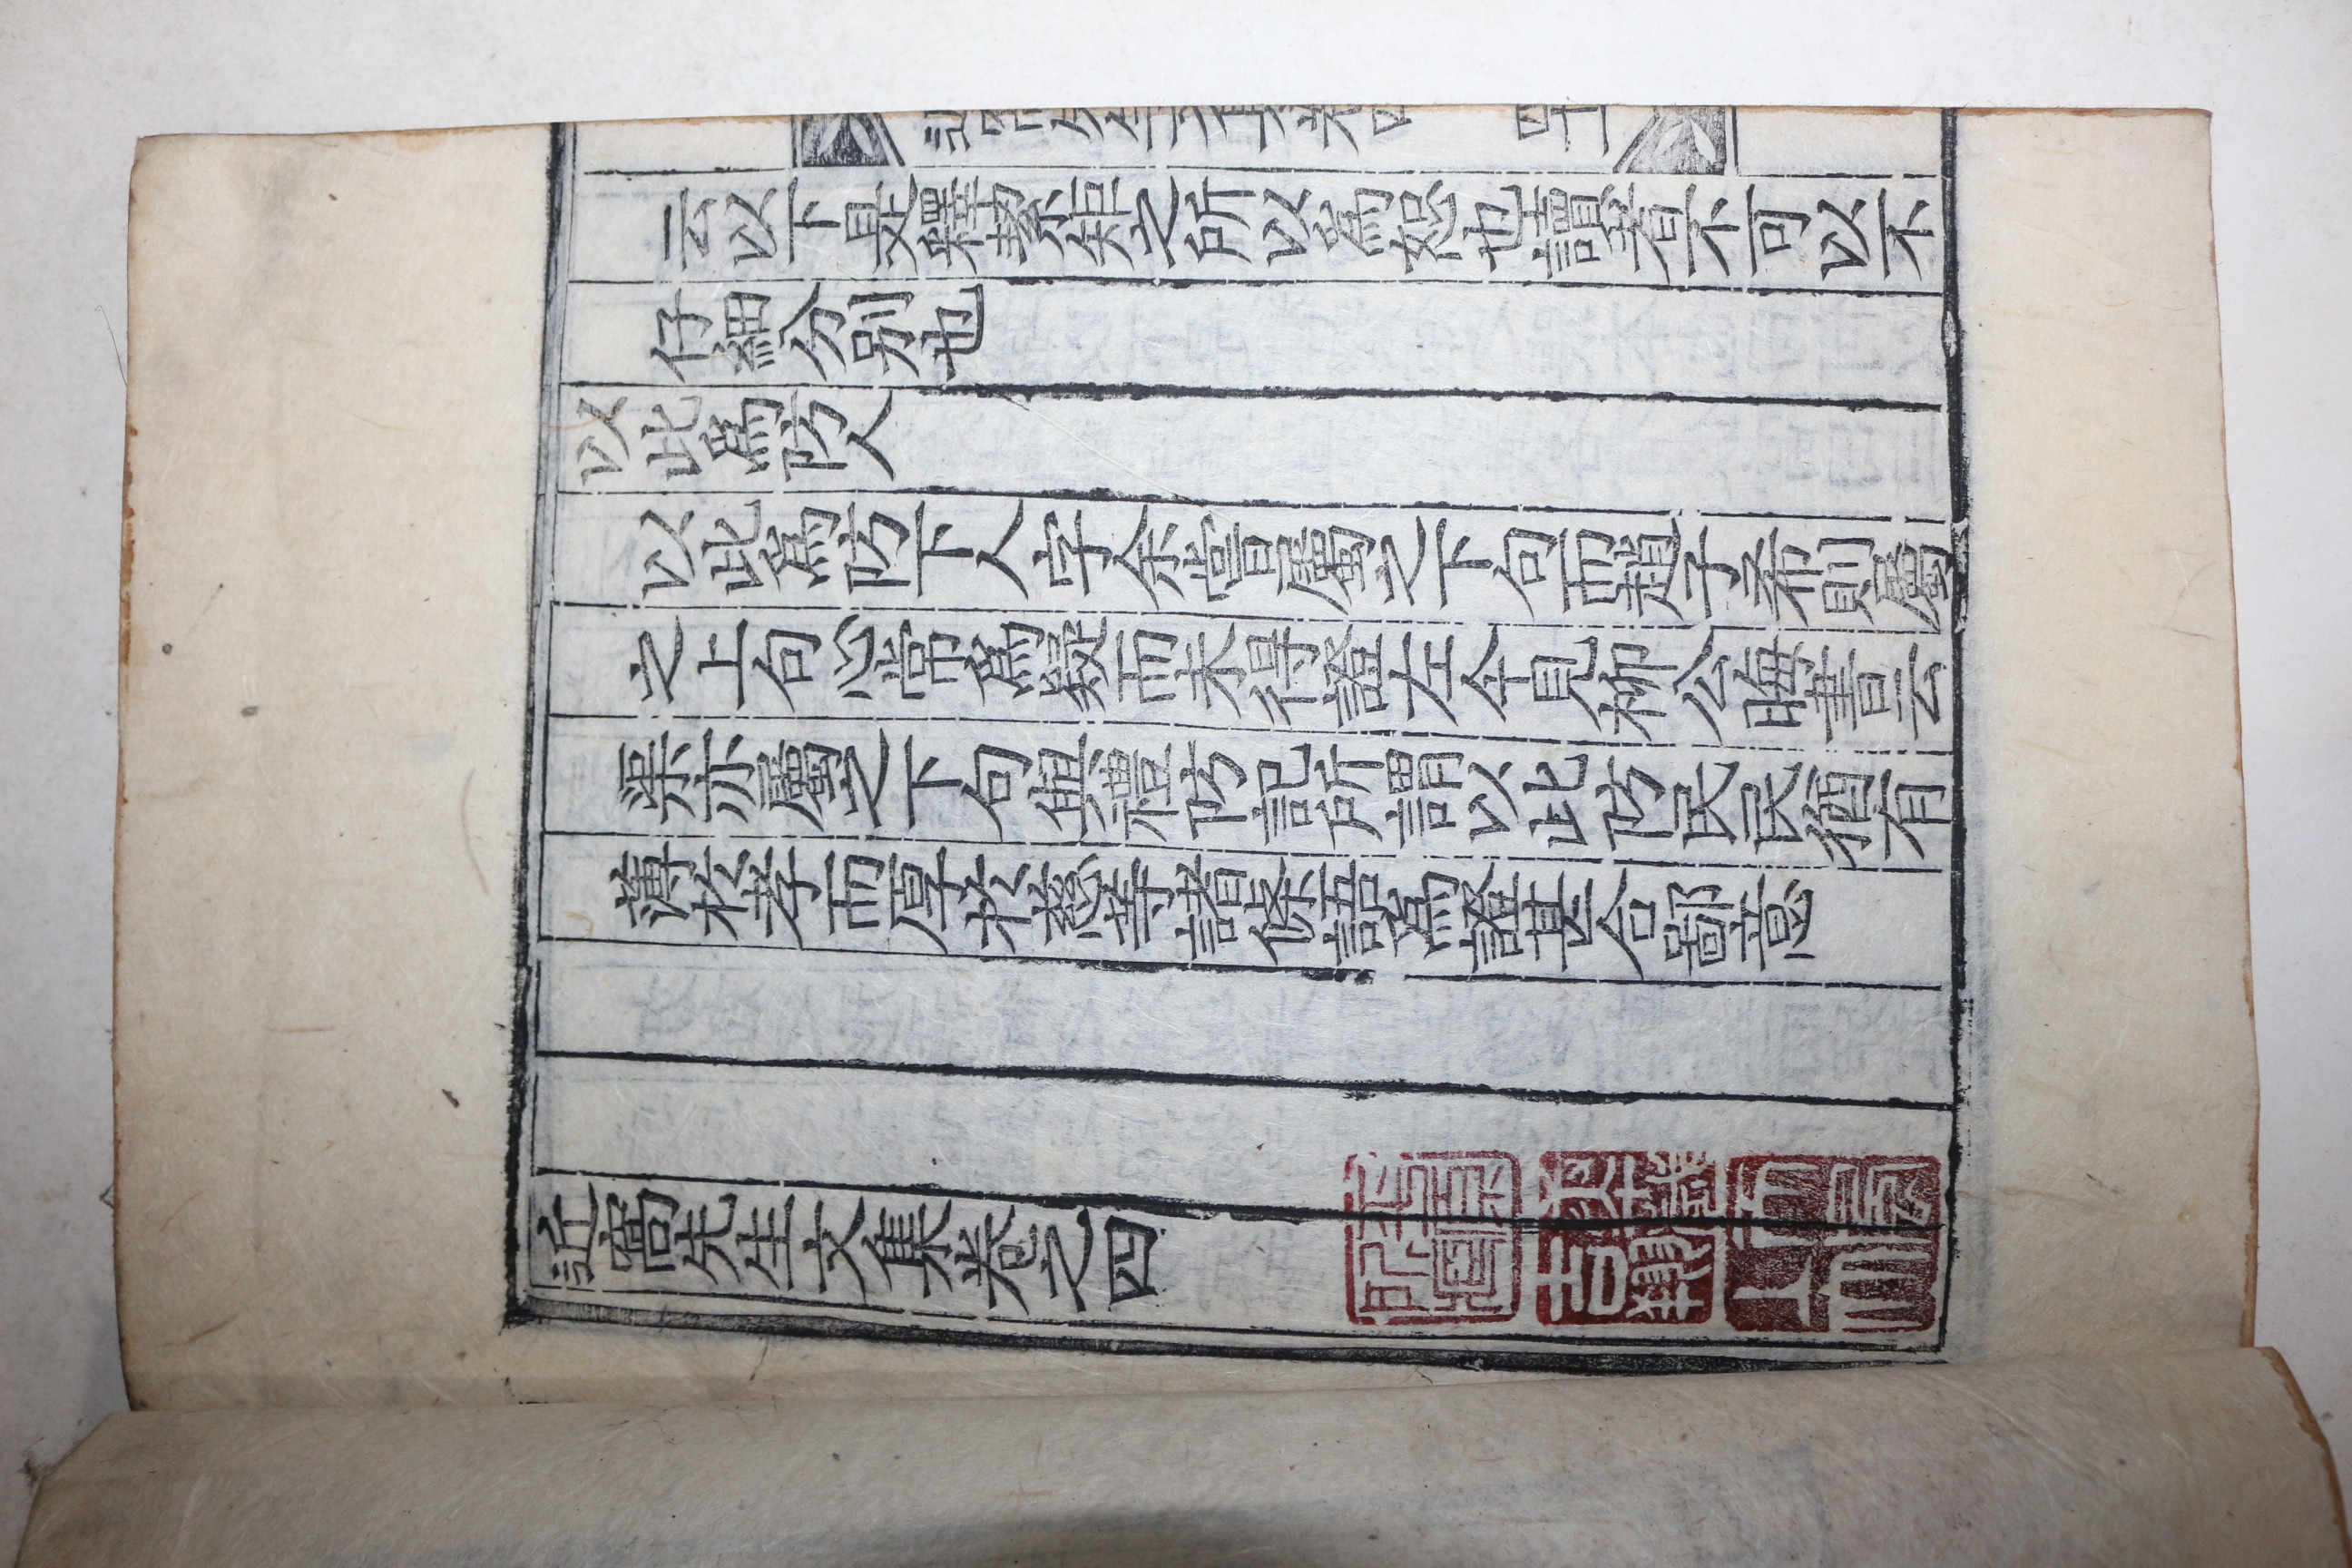 云以下是釋絜矩之所以爲恕也讀者不可以不
仔細分別也
以此爲防人
以此爲防下人字余嘗屬之下句而趙子希則屬
之上句心常爲疑而未得證左今見柳公晦書云
渠亦屬之下句與禮防記所謂以此防民民猶有
薄於孝而厚於慈等諸條語爲證甚合鄙意
近窩先生文集卷之四